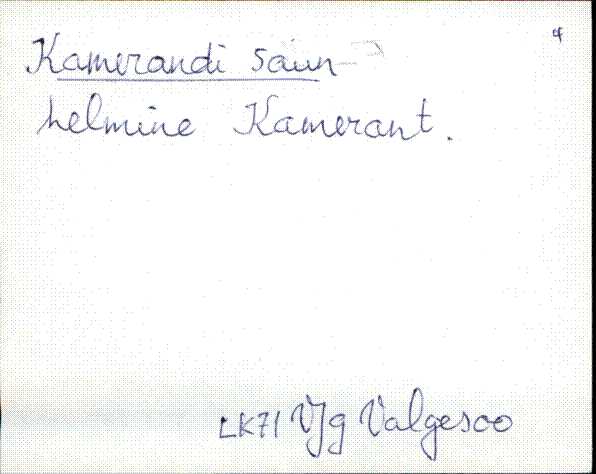 4
Kamerandi saun
helmine Kamerant.
LK71 VJg Valgesoo